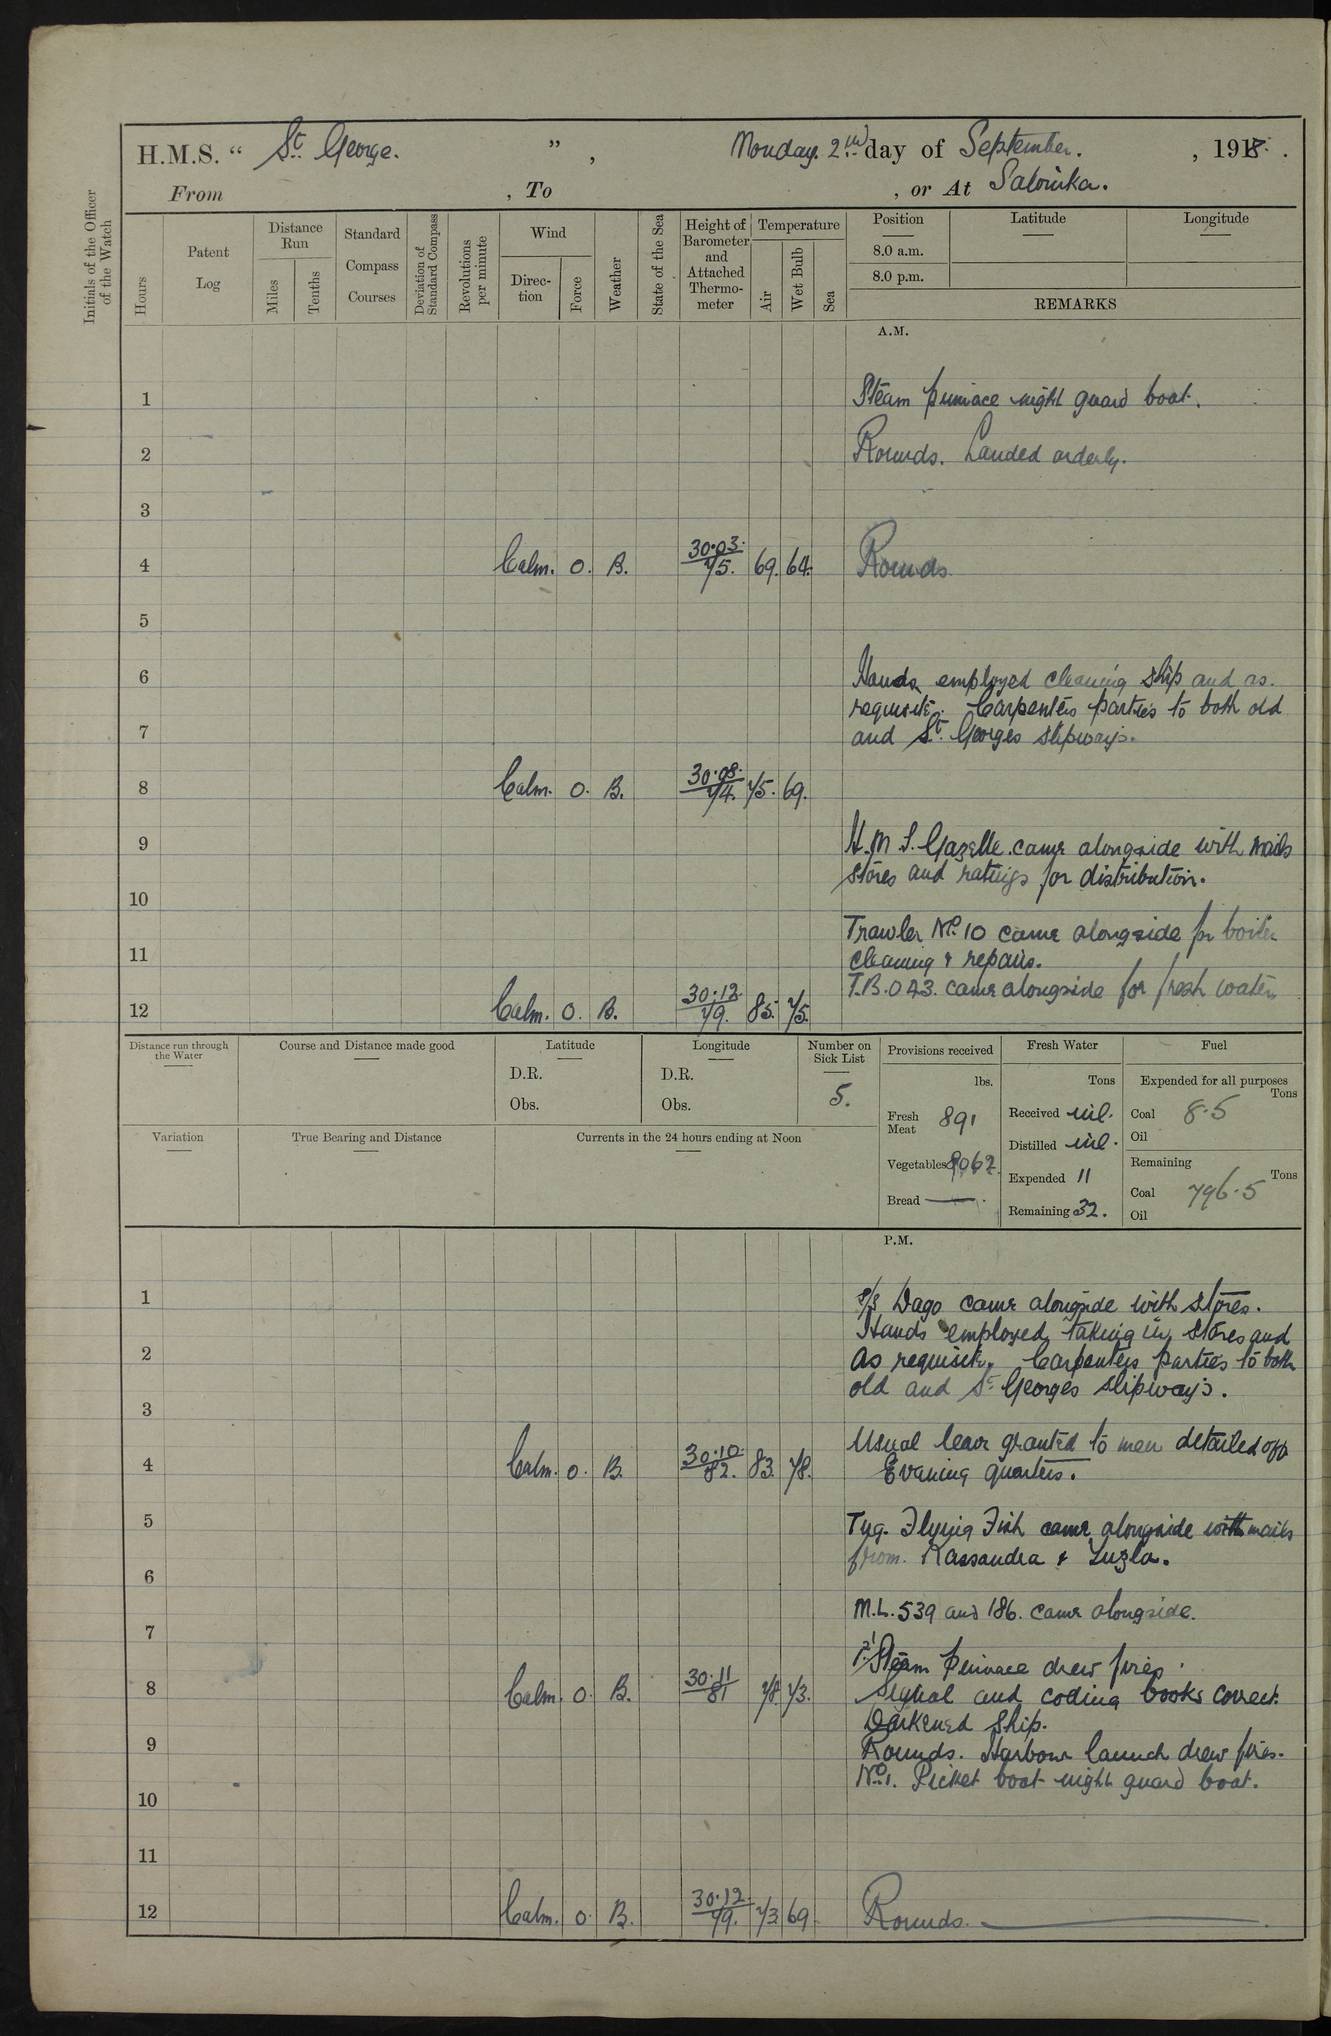 H.M.S. “ St. George. ” , Monday. 2nd day of September. , 1918.
From , To , or At Salonika.
Initials of the Officer of the Watch
Hours
Patent Log
Distance Run
Miles
Tenths
Standard Compass Courses
Deviation of Standard Compass
Revolutions per minute
Wind
Direction
Force
Weather
State of the Sea
Height of Barometer and Attached Thermometer
Temperature
Air
Wet Bulb
Sea
Position Latitude Longitude
8.0 a.m.
8.0 p.m.
REMARKS
A.M.
1 Steam pinnace night guard boat.
2 Rounds. Landed orderly.
3
4 Calm. 0. B. 30.03. 75. 69. 64. Rounds
5
6 Hands employed cleaning ship and as
requisite. Carpenters parties to both old
7 and St. Georges slipways.
8 Calm. 0. B. 30.08. 74. 75. 69.
9 H.M.S. Gazelle. came alongside with mails
stores and ratings for distribution.
10
Trawler No. 10 came alongside for boiler
11 cleaning & repairs.
T.B. 043. came alongside for fresh water
12 Calm. 0. B. 30.12. 79. 85. 75.
Distance run through the Water
Course and Distance made good
Latitude
D.R.
Obs.
Longitude
D.R.
Obs.
Number on Sick List
5.
Provisions received
lbs.
Fresh Meat 891
Vegetables 9062
Bread —
Fresh Water
Tons
Received nil.
Distilled nil.
Expended 11
Remaining 32.
Fuel
Expended for all purposes
Tons
Coal 8.5
Oil
Remaining
Tons
Coal 796.5
Oil
Variation
True Bearing and Distance
Currents in the 24 hours ending at Noon
P.M.
1 S/S Dago came alongside with stores.
Hands employed taking in stores and
2 as requisite. Carpenters parties to both
old and St Georges slipways.
3
Usual leave granted to men detailed off
4 Calm. 0. B. 30.10. 82. 83. 78. Evening quarters.
5 Tug. Flying Fish came alongside with mails
from. Kassandra & Tuzla.
6
M.L. 539 and 186. came alongside.
7
Steam pinnace drew fires.
8 Calm. 0. B. 30.11 81 78. 73. Signal and coding books correct.
Darkened ship.
9 Rounds. Harbour launch drew fires.
No. 1. Picket boat night guard boat.
10
11
12 Calm. 0. B. 30.12. 79. 73. 69. Rounds.